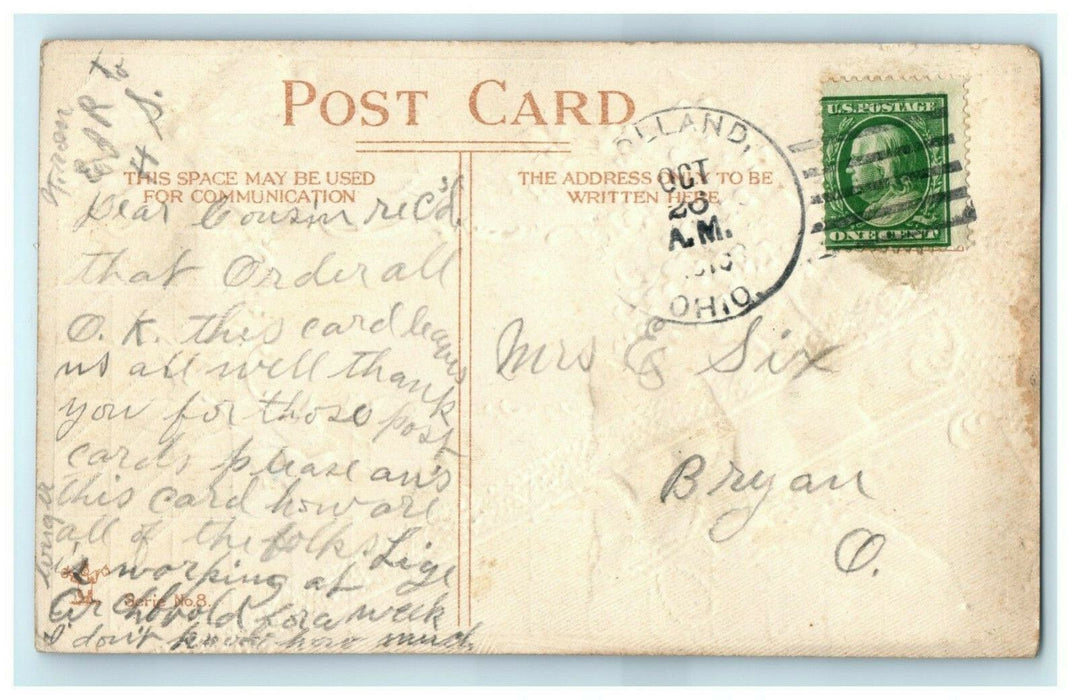 POST CARD
THIS SPACE MAY BE USED
FOR COMMUNICATION
THE ADDRESS ONLY TO BE
WRITTEN HERE
U.S. POSTAGE
ONE CENT
OLLAND,
OCT
A.M.
OHIO.
from
E J R to
H S.
Dear Cousin rec'd
that Order all
O. K. this card leaves
us all well thank
you for those post
cards please ans
this card how are
all of the folks Lige
is working at
Archbold for a week
longer
I don't know how much
Serie No. 8.
Mrs E Six
Bryan
O.